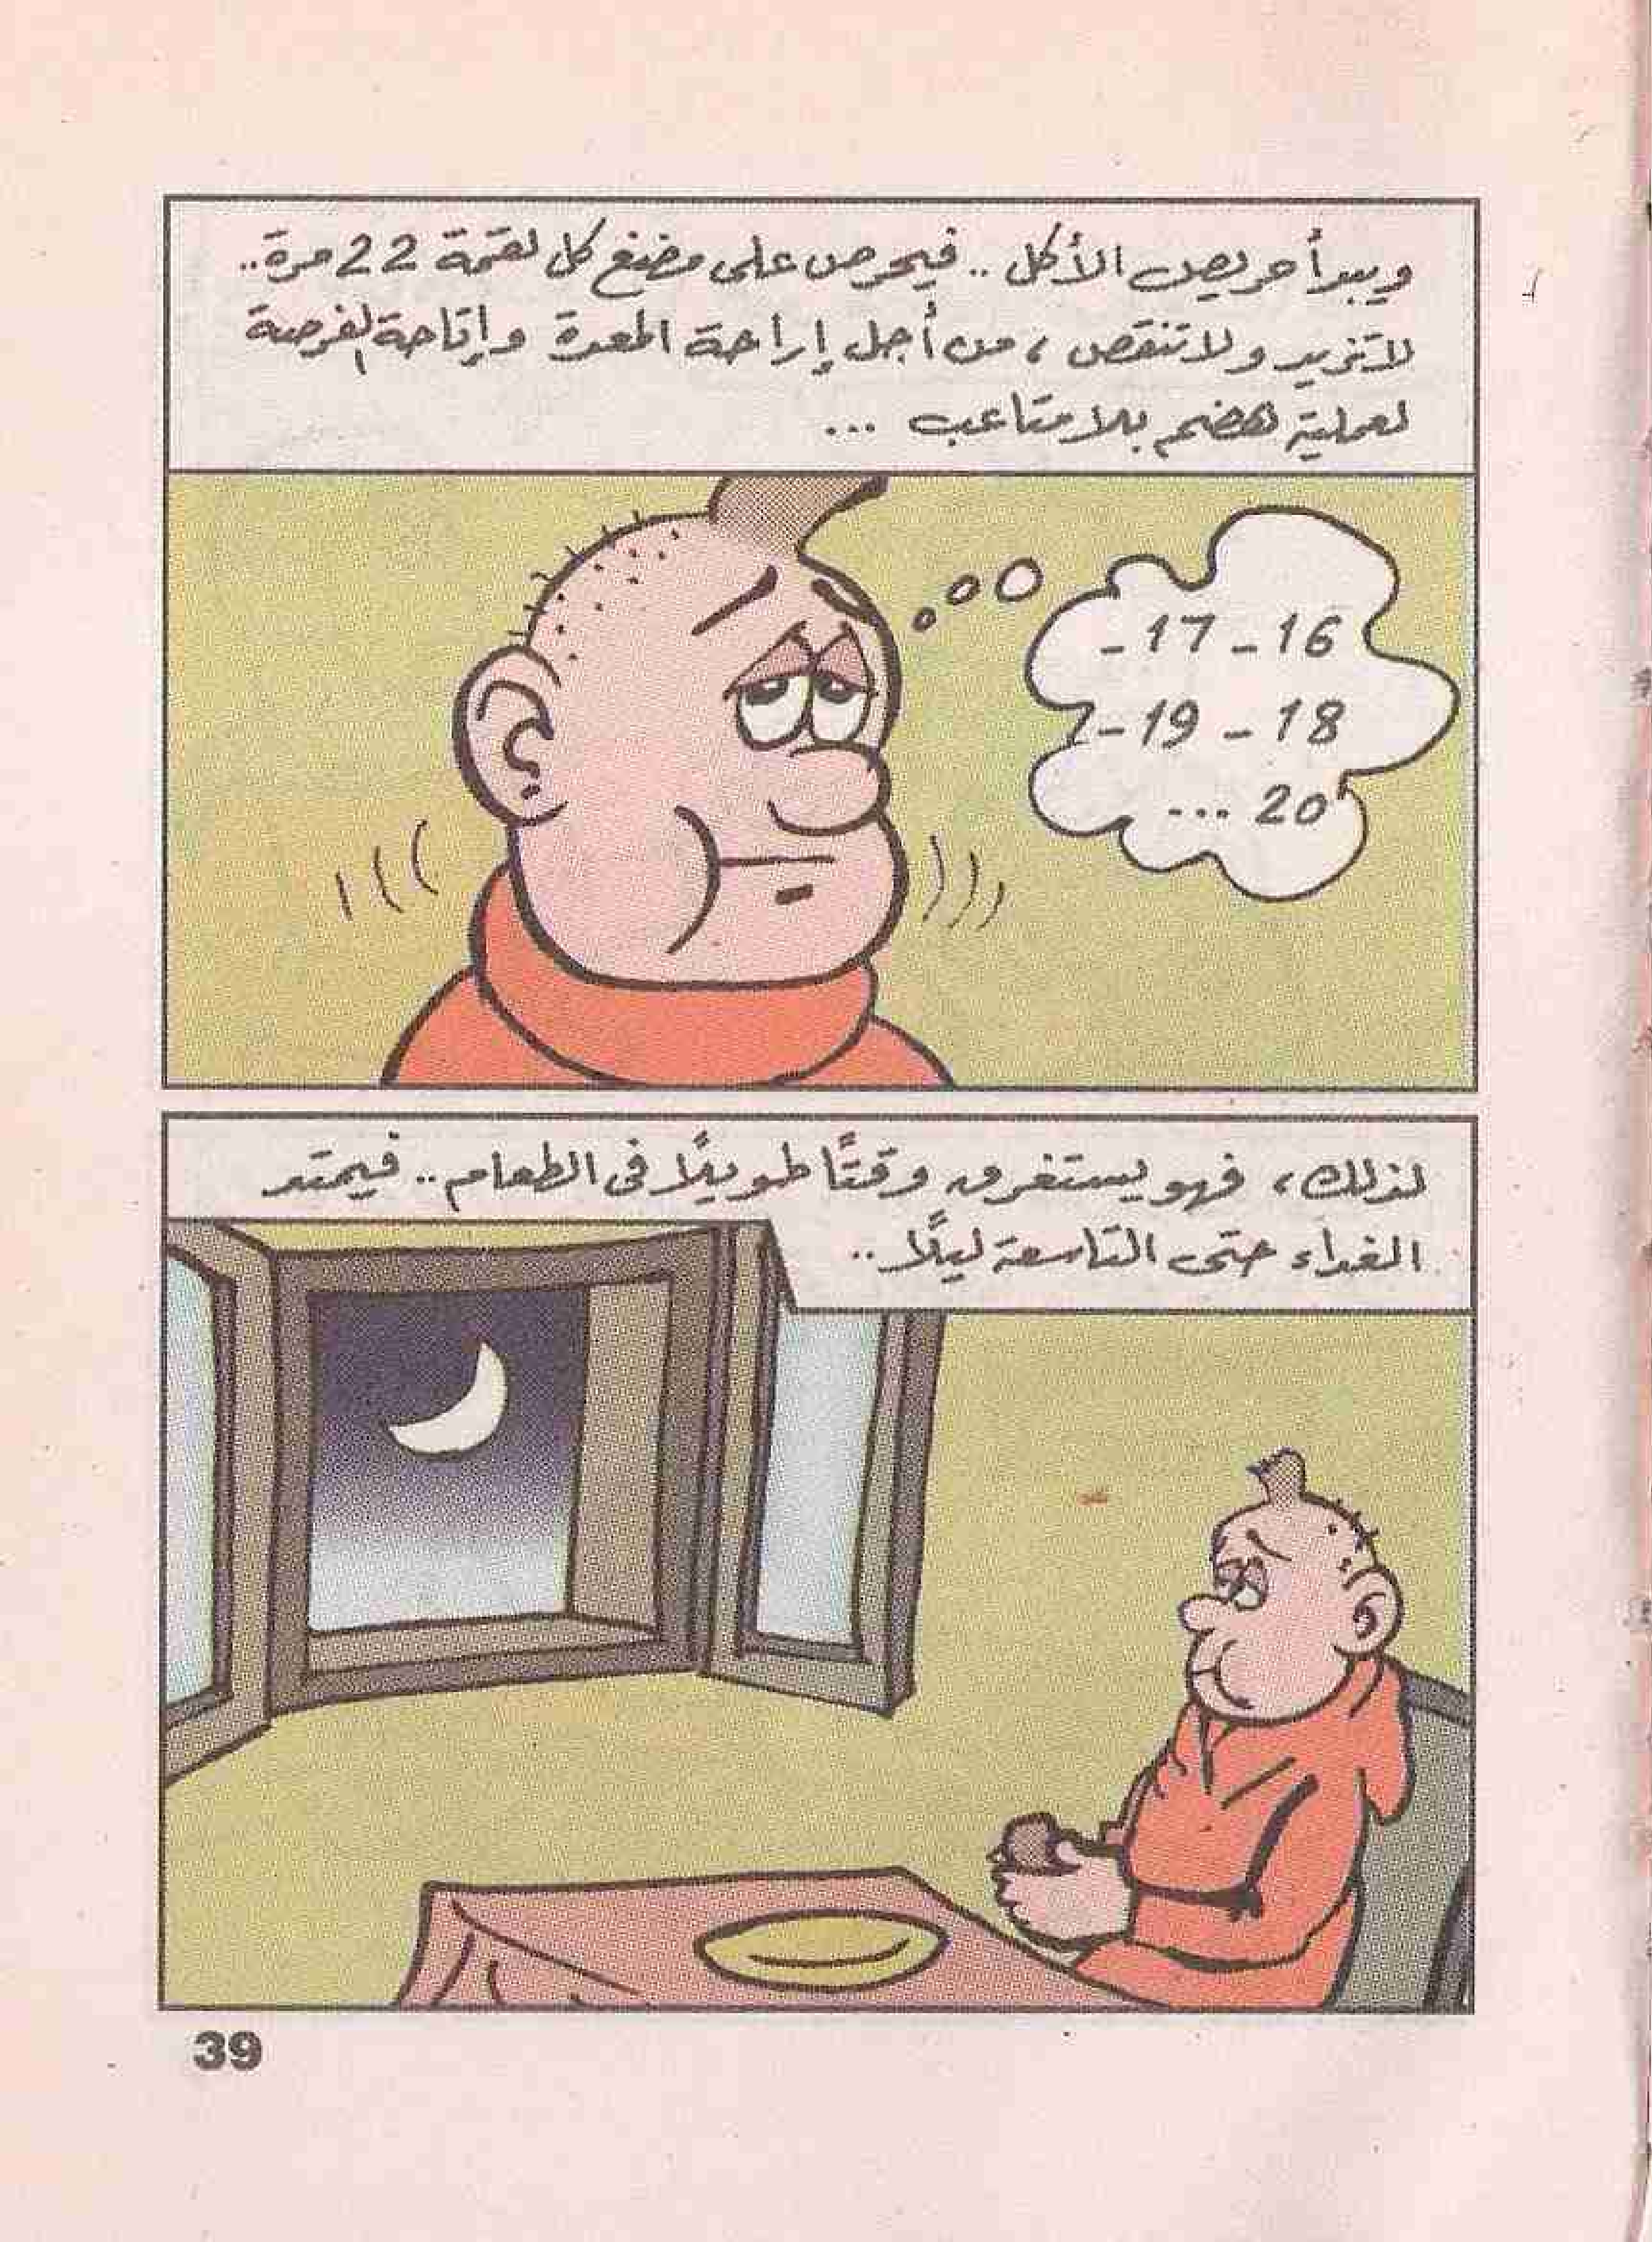 ويبدأ حريص الأكل .. فيحرص على مضغ كل لقمة 22 مرة ..
لا تزيد ولا تنقص ، من أجل إراحة المعدة وإتاحة الفرصة
لعملية هضم بلا متاعب ...
16 - 17 -
18 - 19 -
20 ...
لذلك ، فهو يستغرق وقتًا طويلًا فى الطعام .. فيمتد
الغداء حتى التاسعة ليلًا ..
39